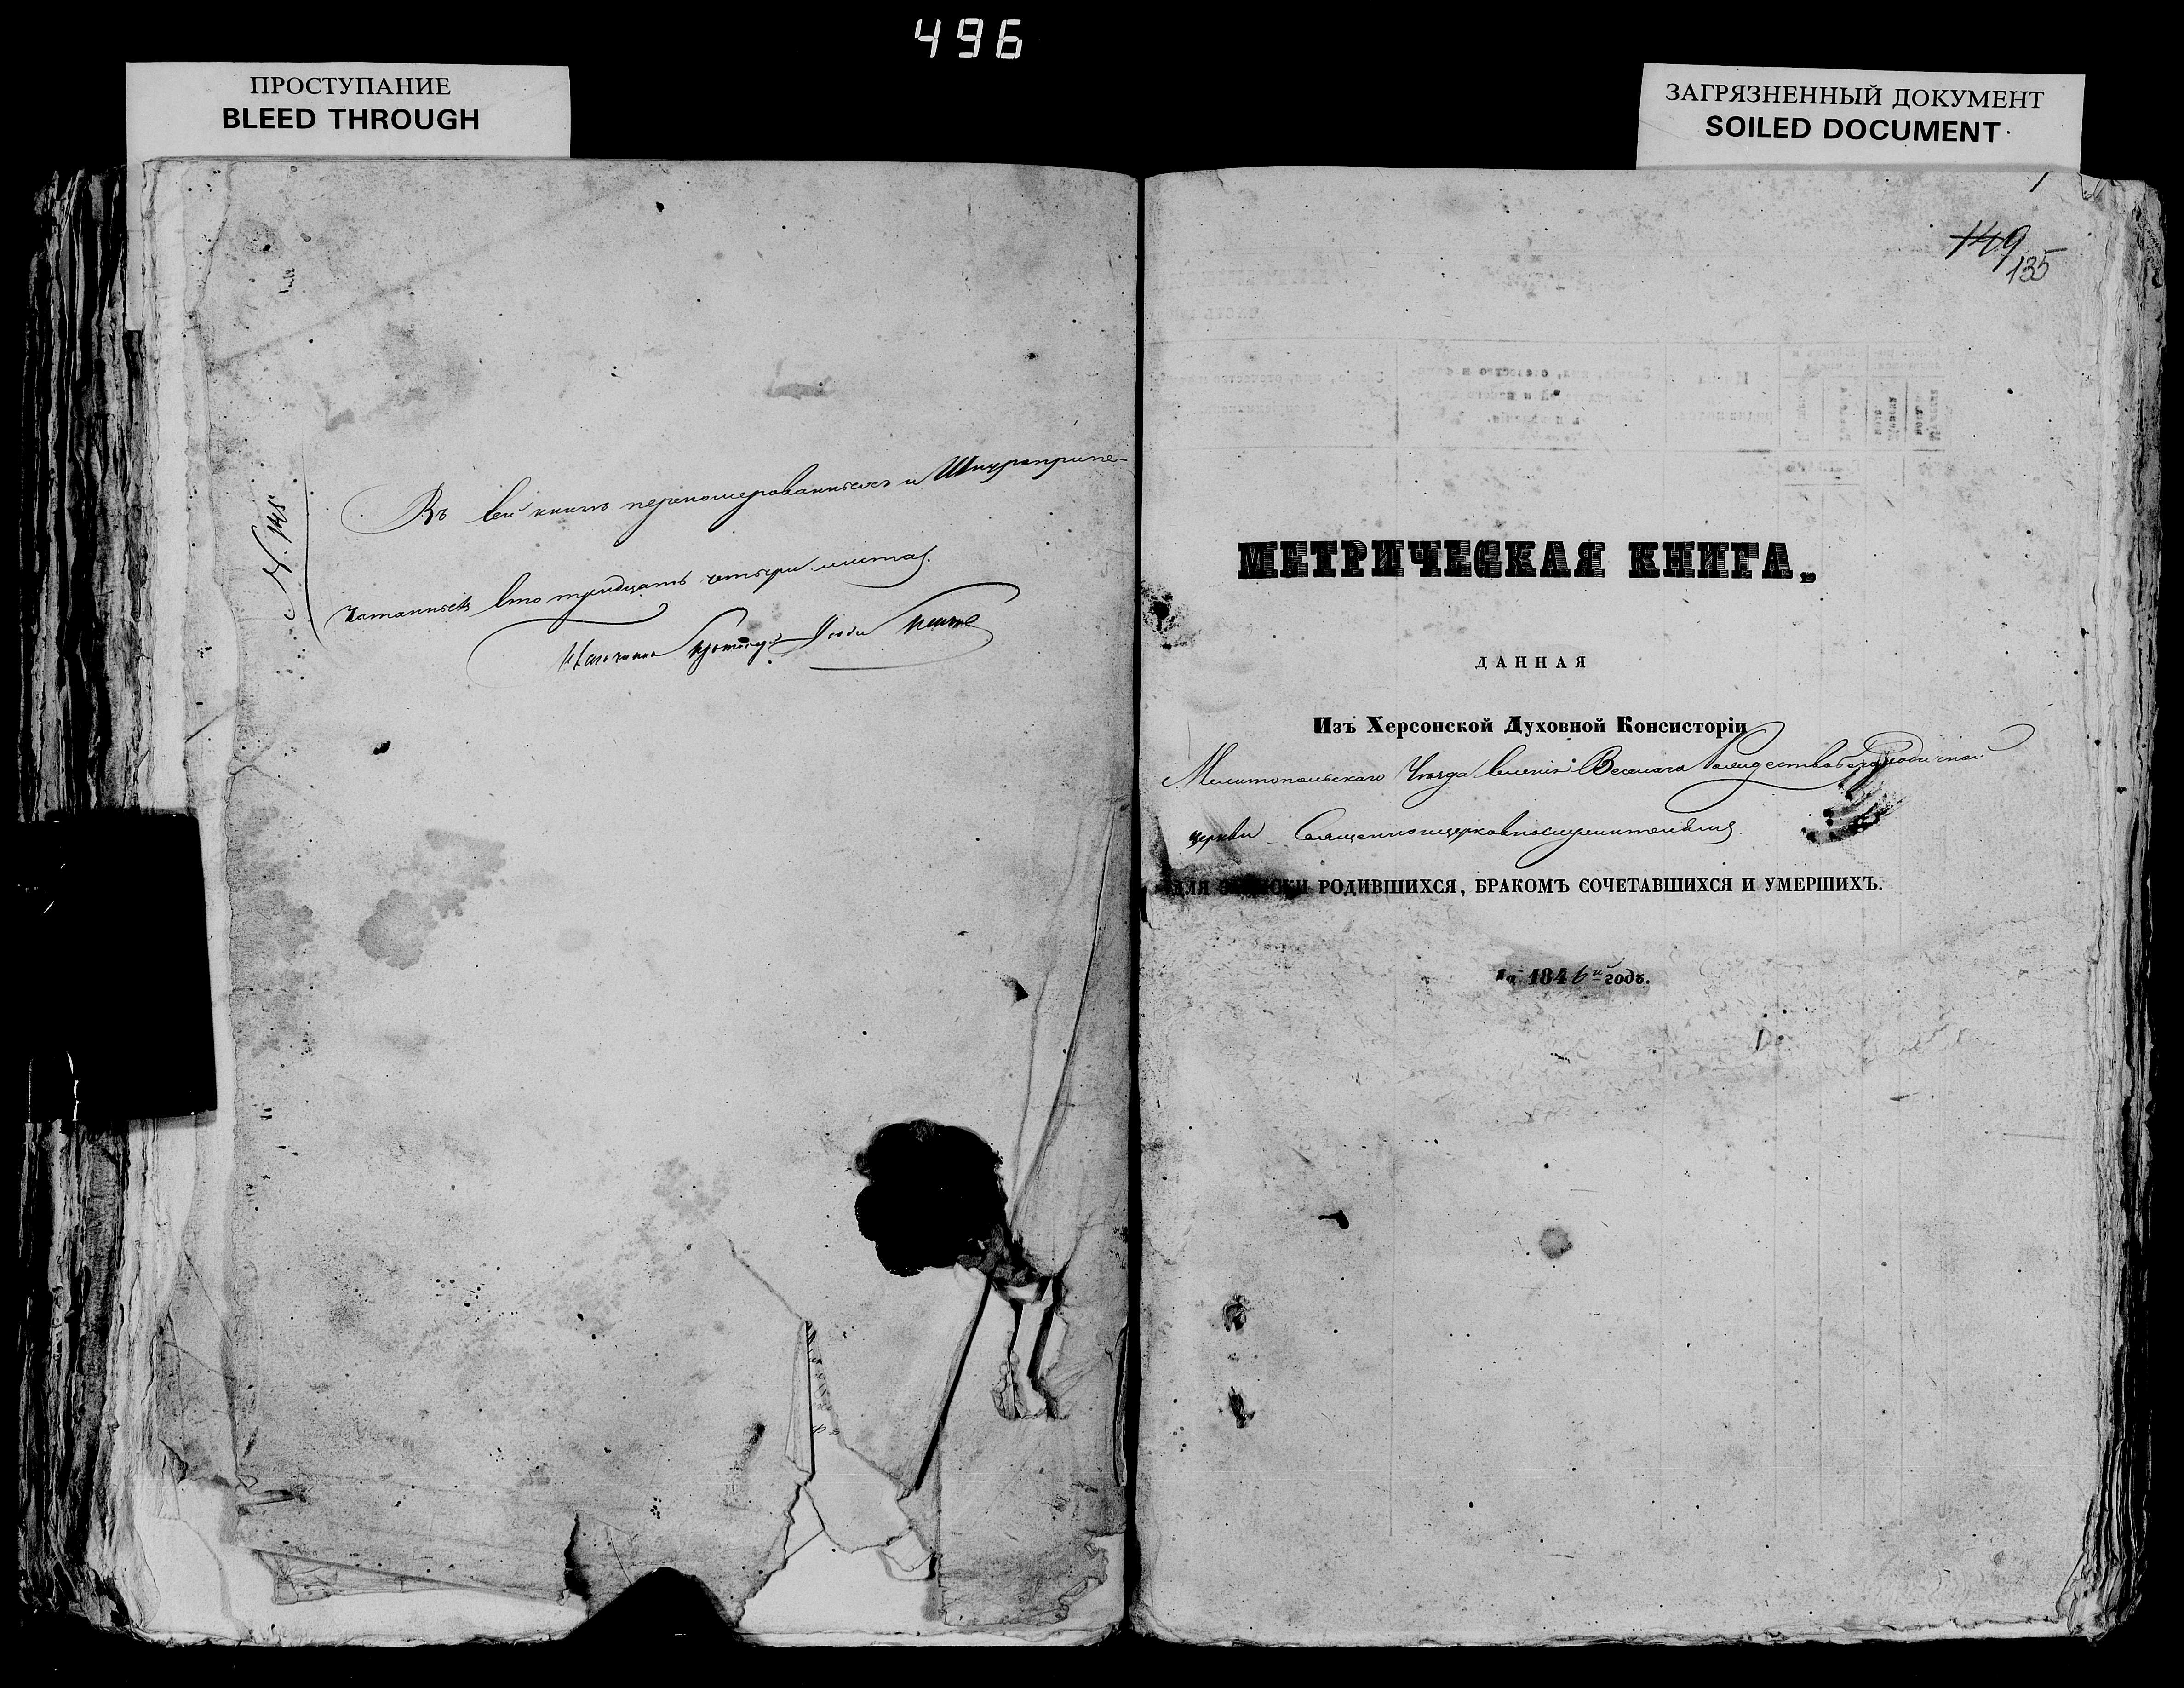 496
ПРОСТУПАНИЕ
BLEED THROUGH
ЗАГРЯЗНЕННЫЙ ДОКУМЕНТ
SOILED DOCUMENT
N. 148
Въ сей книгѣ переномерованныхъ и Шнуроприпе-
чатанныхъ сто тридцать четыри листа.
1
149
135
МЕТРИЧЕСКАЯ КНИГА,
ДАННАЯ
Изъ Херсонской Духовной Консисторіи
Мелитопольскаго Уѣзда селенія Веселаго Рождество-Богородичной
церкви Священноицерковнослужителямъ
ДЛЯ ЗАПИСКИ РОДИВШИХСЯ, БРАКОМЪ СОЧЕТАВШИХСЯ И УМЕРШИХЪ.
На 1846й годъ.